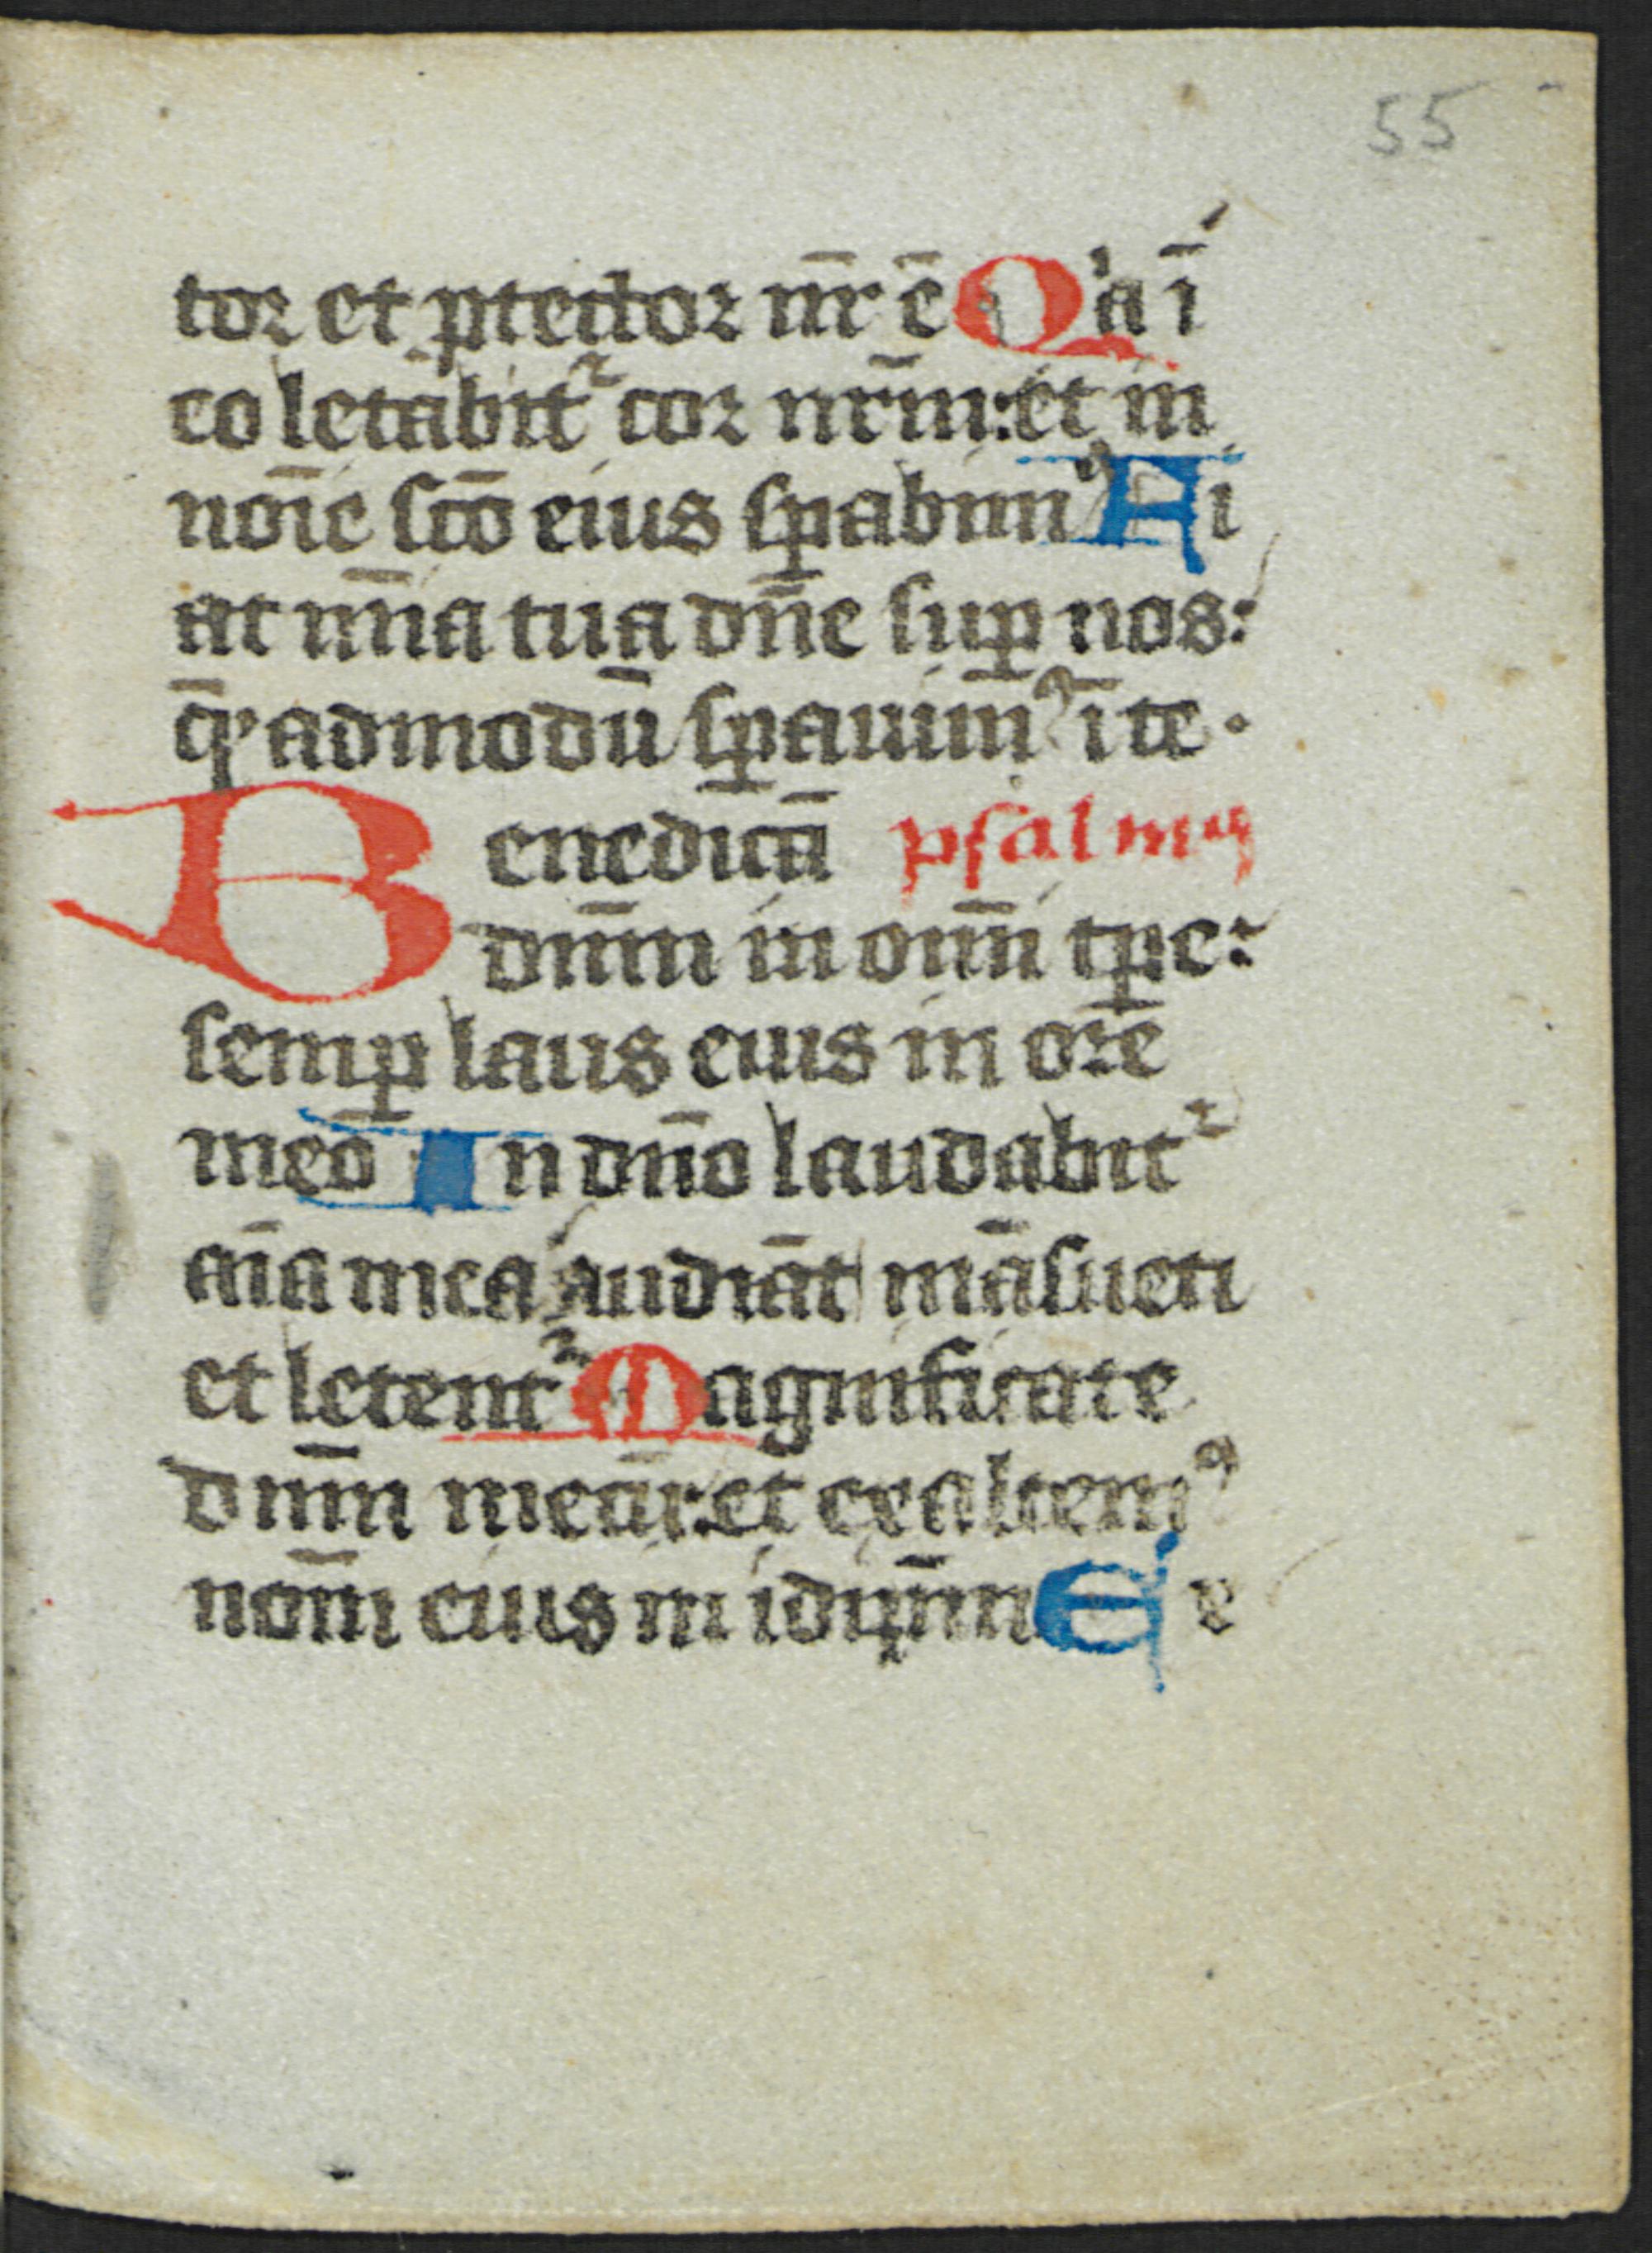 55
tor et ꝓtector nr̄ ē Qͥa ī
eo letabit᷑ cor nrm̄: et in
noīe sc̄o eius sꝑabim᷒ Fi
at mīa tua dn̄e suꝑ nos:
q̄ꝰadmodū sꝑauim᷒ ī te.
Benedicā psalmꝰ
dnm̄ in om̄i tꝑe:
semꝑ laus eius in ore
meo In dn̄o laudabit᷑
aīa mea: audiāt māsueti
et letent᷑ Magnificate
dnm̄ mecū: et exaltem᷒
nom̄ eius in idip̄m Ex